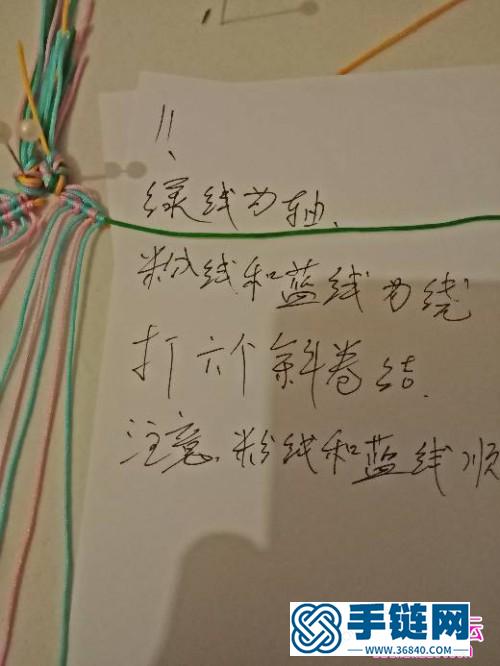 11、
绿线为轴.
粉线和蓝线为绕
打六个斜卷结.
注意,粉线和蓝线顺
手链网
www.36840.com